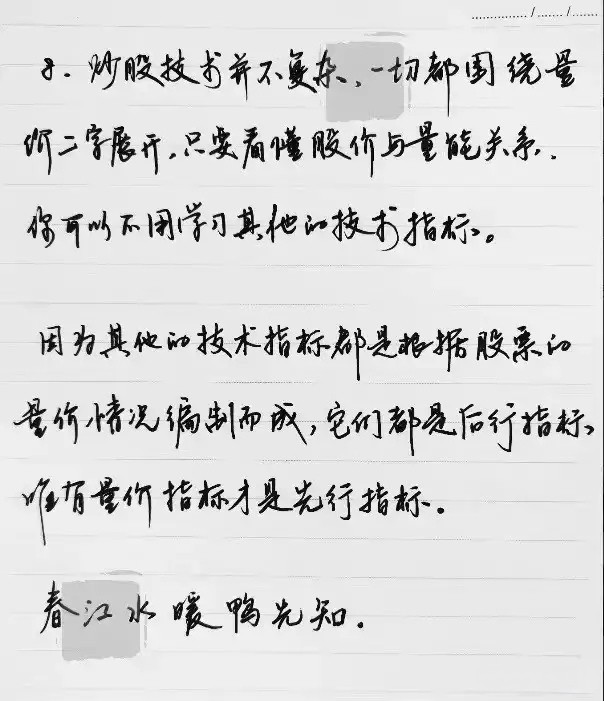 8. 炒股技术并不复杂，一切都围绕量
价二字展开，只要看懂股价与量能关系，
你可以不用学习其他的技术指标。
因为其他的技术指标都是根据股票的
量价情况编制而成，它们都是后行指标，
唯有量价指标才是先行指标。
春江水暖鸭先知。